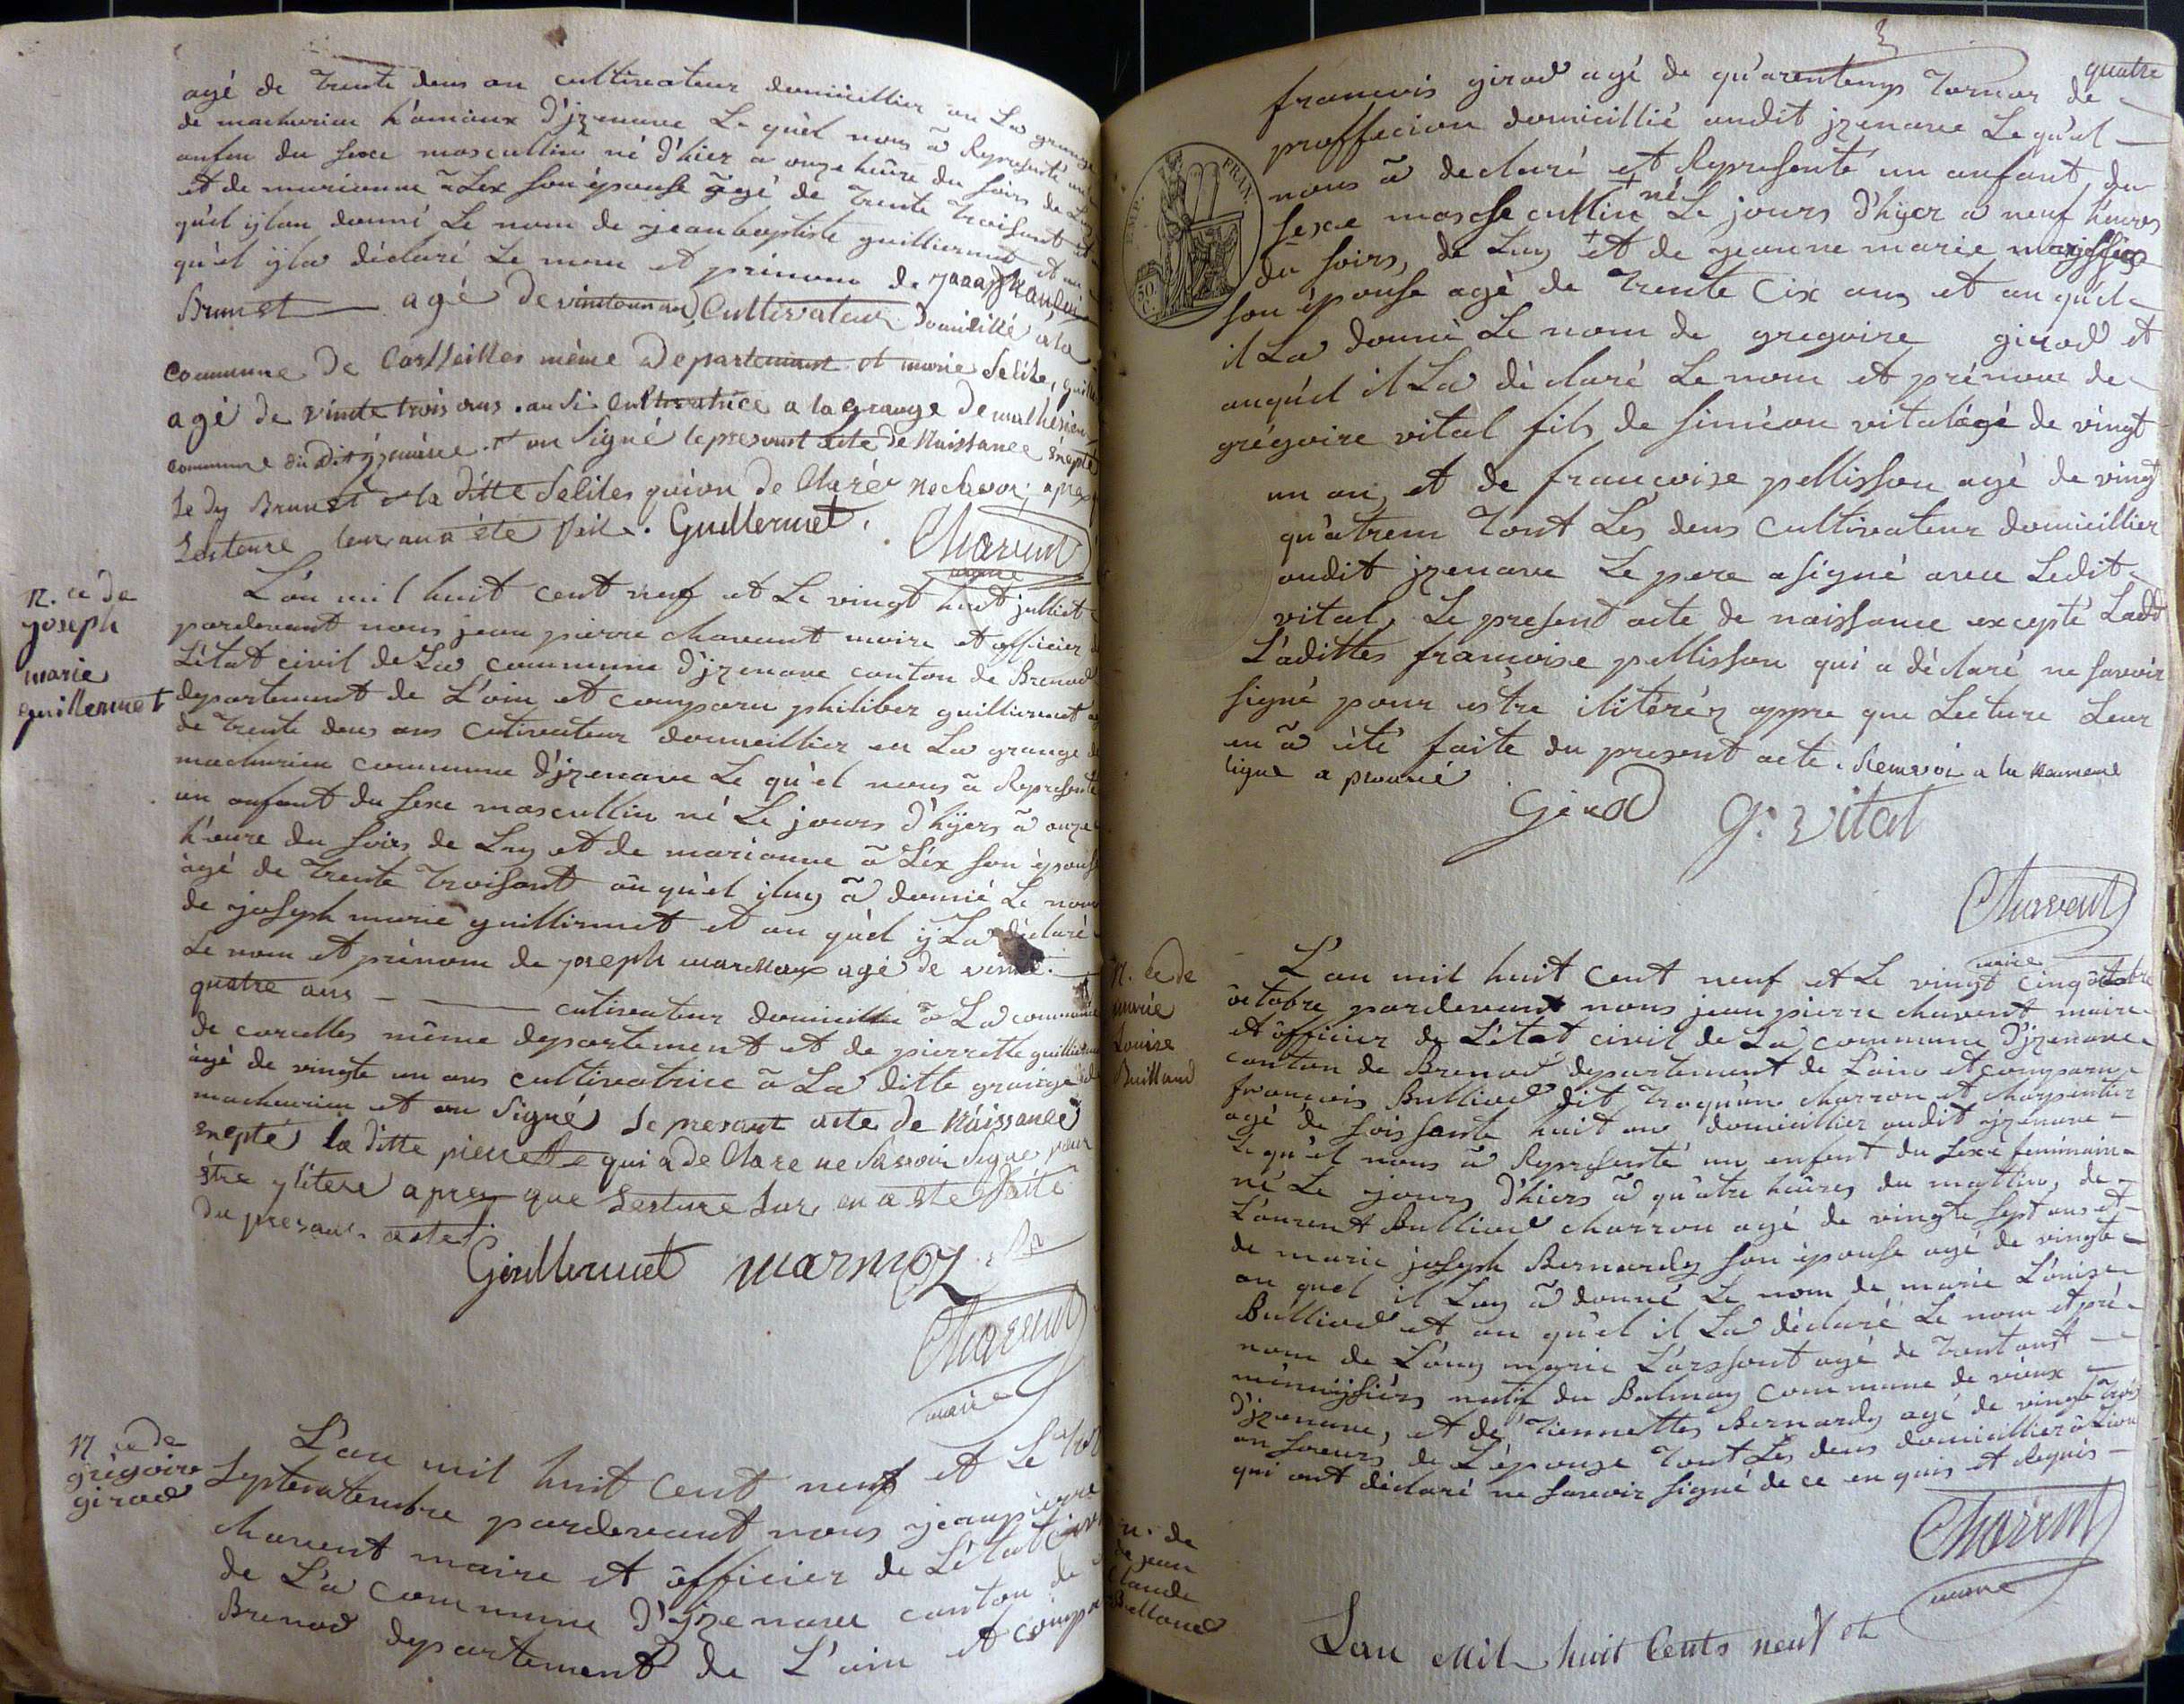 agé de trente deus an cultivateur domicillier au La grange
de machurieu h'amiaux D'jzenave Le qu'el nous ã Represente un
enfen du sexe mascullin né d'hier a onze hûre du soirs de Luy
et de marianne ã Lex son épouse ãgé de trente troisant et
qu'el ijlan donné Le nom de jeanbaptiste guilliermet et au
qu'el ÿla déclaré Le nom et prénom de
Brunet agé de Cultivateur Domicillié à la
commune de Corsseilles même departement et marie Felite, guille
agé de vinte trois ans. ausi Cultivatrice a la grange de malherieu
commune du dit et on Signé le presant acte de Naissance énepté
le dy Brunet et la ditte Felites qui on de Claré ne savoir apres
Lecture leur an a été fait. Guillermet. Chavent
maire
N. ce de
joseph
marie
guillermet
L'an mil huit cent neuf et Le vingt huit julliet
pardevant nous jean pierre chavant maire et officier de
L'état civil de La commune D'jzenave canton de Brenod
departement de L'ain et comparu philiber guilliermet agé
de trente deus ans Cutivateur domeillier en La grange de
machurieu commune D'jzenave Le qu'el nous ã Represente
un enfant du sexe mascullin né Le jours d'hÿers ã onze
h'eure du soirs de Luy et de marianne ã Léx son épouse
ãgé de trente troisant aũ qu'el iluy ã donné Le nom
de joseph marie guilliermet et au qu'el ÿ La déclaré
Le nom et prénom de joseph agé de vinte.
quatre ans cutivateur domicillie ã La commune
de corcelles même departement et de pierrette guilliermet
ãgé de vingte un ans cultivatrice ã La ditte grainge de
machurieu et on Signé le presant acte de Naissance
enepté la ditte pierrette qui a de Clare ne Savoir Signe pour
étre ylitere apres que Lecture lur en a ete faite
du presant acte.
Guillermet marmoz
Chavent
maire
N ce de
grégoire
girod
L'an mil huit Cent neuf et Le
Septentembre pardevant nous jeanpierre
chavent maire et officier de L'état Civil
de L'a commune D'jzenave canton de
Brenod departement de L'ain et compa
3
quatre
francois girod agé de qu'arentemps tornor de
proffecion domicillié audit jzenave Le qu'el
nous ã declaré et Represente un anfant du
sexe mascullin né Le jours d'hÿer a neuf heures
du soirs, de Luy et de jeanne marie
son épouse agé de trente Cix ans et au qu'el
il La donné Le nom de gregoire girod et
auqu'el il La déclaré Le nom et prénom de
grégoire vital fils de siméon vital ágé de vingt
un an, et de francoise pellisson agé de vingt
qu'atrem tout Les deus cultivateur domicillier
audit jzenave Le pere a signé avec Ledit
vital, Le present acte de naissance excepté Ladd
L'adittes francoise pellisson qui a déclaré ne savoir
signé pour estre ilitérés appre que Lecture Leur
en ã été faite du present acte. Renvoi a la
ligne a prouvé
Girod G: vital
Chavent
maire
N. ce de
marie
Louise
Buillaud
L'an mil huit Cent neuf et Le vingt cinq
octobre pardevant nous jean pierre chavent maire
et officier de L'état civil de La commune D'jzenave
canton de Brenod departement de L'ain et comparu
francois Bulliod dit charron et charpentier
agé de soissante huit an domicillier audit jzenave
Le qu'el nous ã Represente un enfent du sexe feminain
né Le jours d'hiers ã qu'atre hûres du mattin, de
Laurent Bulliod charron agé de vingte sept ans et
de marie joseph Bernardy son épouse agé de vingte
au quel il Luy ã donné Le nom de marie Louise
Bulliod et au qu'el il La déclaré Le nom et pré
nom de Louy marie L'arssont agé de trent ant
ménnijsiérs natif du Balmay commune de vieux
D'jzenave, et de tiennettes Bernardy agé de vingte trois
an soeurs de L'épouze tout Les deus domicillier ã Lion
qui ont déclaré ne savoir signé de ce enquis et Requis
Chavent
maire
n. de
de jean
Claude
L'an Mil huit Cents neuf et